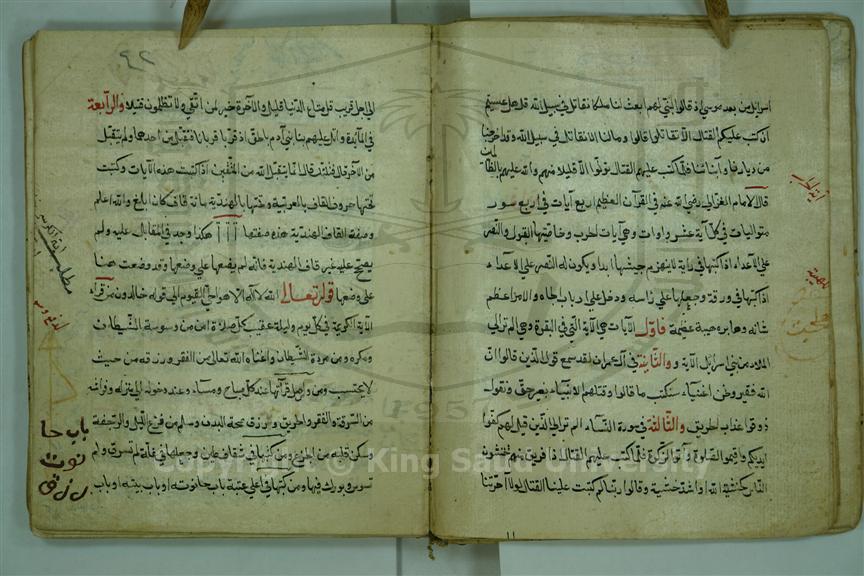 اسرايل من بعد موسى اذ قالوا لنبي لهم ابعث لنا ملكا نقاتل في سبيل الله قل هل عسيتم
ان كتب عليكم القتال الا تقاتلوا قالوا وما لنا الا نقاتل في سبيل الله وقد اخرجنا
من ديارنا وابنائنا فلما كتب عليهم القتال تولوا الا قليلا منهم والله عليم بالظالمين
قال الامام الغزالي رضي الله عنه في القرآن العظيم اربع آيات في اربع سور
متواليات في كل آية عشر واوات وهي آيات الحرب وخاصيتها القول والنصر
على الاعداء اذا كتبها في راية لا ينهزم جيشها ابدا ويكون له النصر على الاعداء
اذا كتبها في ورقة وجعلها على راسه ودخل على ارباب الجاه والامراء عظم
شانه وهابوه هيبة عظيمة فاول الآيات هي الآية التي في البقرة وهي الم تر الى
الملاء من بني اسرايل الآية والثانية في آل عمران لقد سمع قول الذين قالوا ان
الله فقير ونحن اغنياء سنكتب ما قالوا وقتلهم الانبياء بغير حق ونقول
ذوقوا عذاب الحريق والثالثة في سورة النساء الم تر الى الذين قيل لهم كفوا
ايديكم واقيموا الصلوة وآتوا الزكوة فلما كتب عليهم القتال اذا فريق منهم يخشون
الناس كخشية الله او اشد خشية وقالوا ربنا لم كتبت علينا القتال لولا اخرتنا
٤٢
الى اجل قريب قل متاع الدنيا قليل والآخرة خير لمن اتقى ولا تظلمون فتيلا والرابعة
في المآئدة واتل عليهم نبا بني آدم بالحق اذ قربا قربانا فتقبل من احدهما ولم يتقبل
من الآخر قال لاقتلنك قال انما يتقبل الله من المتقين اذا كتبت هذه الآيات وكتبت
تحتها حروف القاف بالعربية وتحتها بالهندية مائة قاف كان ابلغ والله اعلم
وصفة القاف الهندية هذه صفتها آ آ آ هكذا وجد في المقابل عليه ولم
يصح عليه غير قاف الهندية فانه لم يضعها على وضعها وقد وضعت هنا
على وضعها قوله تعالى الله لا اله الا هو الحي القيوم الى قوله خالدون من قراء
الآية الكريمة في كل يوم وليلة عقيب كل صلاة امن من وسوسة الشيطان
ومكره ومن مردة الشيطان واغناه الله تعالى من الفقر ورزقه من حيث
لا يحتسب ومن واصل قرآتها عند كل صباح ومساء وعند دخوله الى منزله وفراغه
من السرقة والفقر والحريق ورزق صحة البدن وسلم من فزع الليل والرجفة
وسكن قلبه من الجزع ومن كتبها في شقاف طين وجعلها في غلة لم تسرق ولم
تسوس وبورك فيها ومن كتبها في اعلى عتبة باب حانوته او باب بيته او باب
باب حا
نوت
Copyright © King Saud University
1957